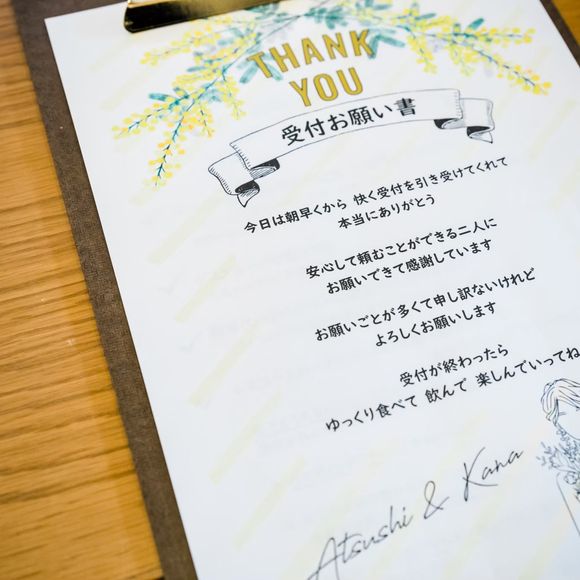 THANK
YOU
受付お願い書
今日は朝早くから 快く受付を引き受けてくれて
本当にありがとう
安心して頼むことができる二人に
お願いできて感謝しています
お願いごとが多くて申し訳ないけれど
よろしくお願いします
受付が終わったら
ゆっくり食べて 飲んで 楽しんでいってね
Atsushi & Kana